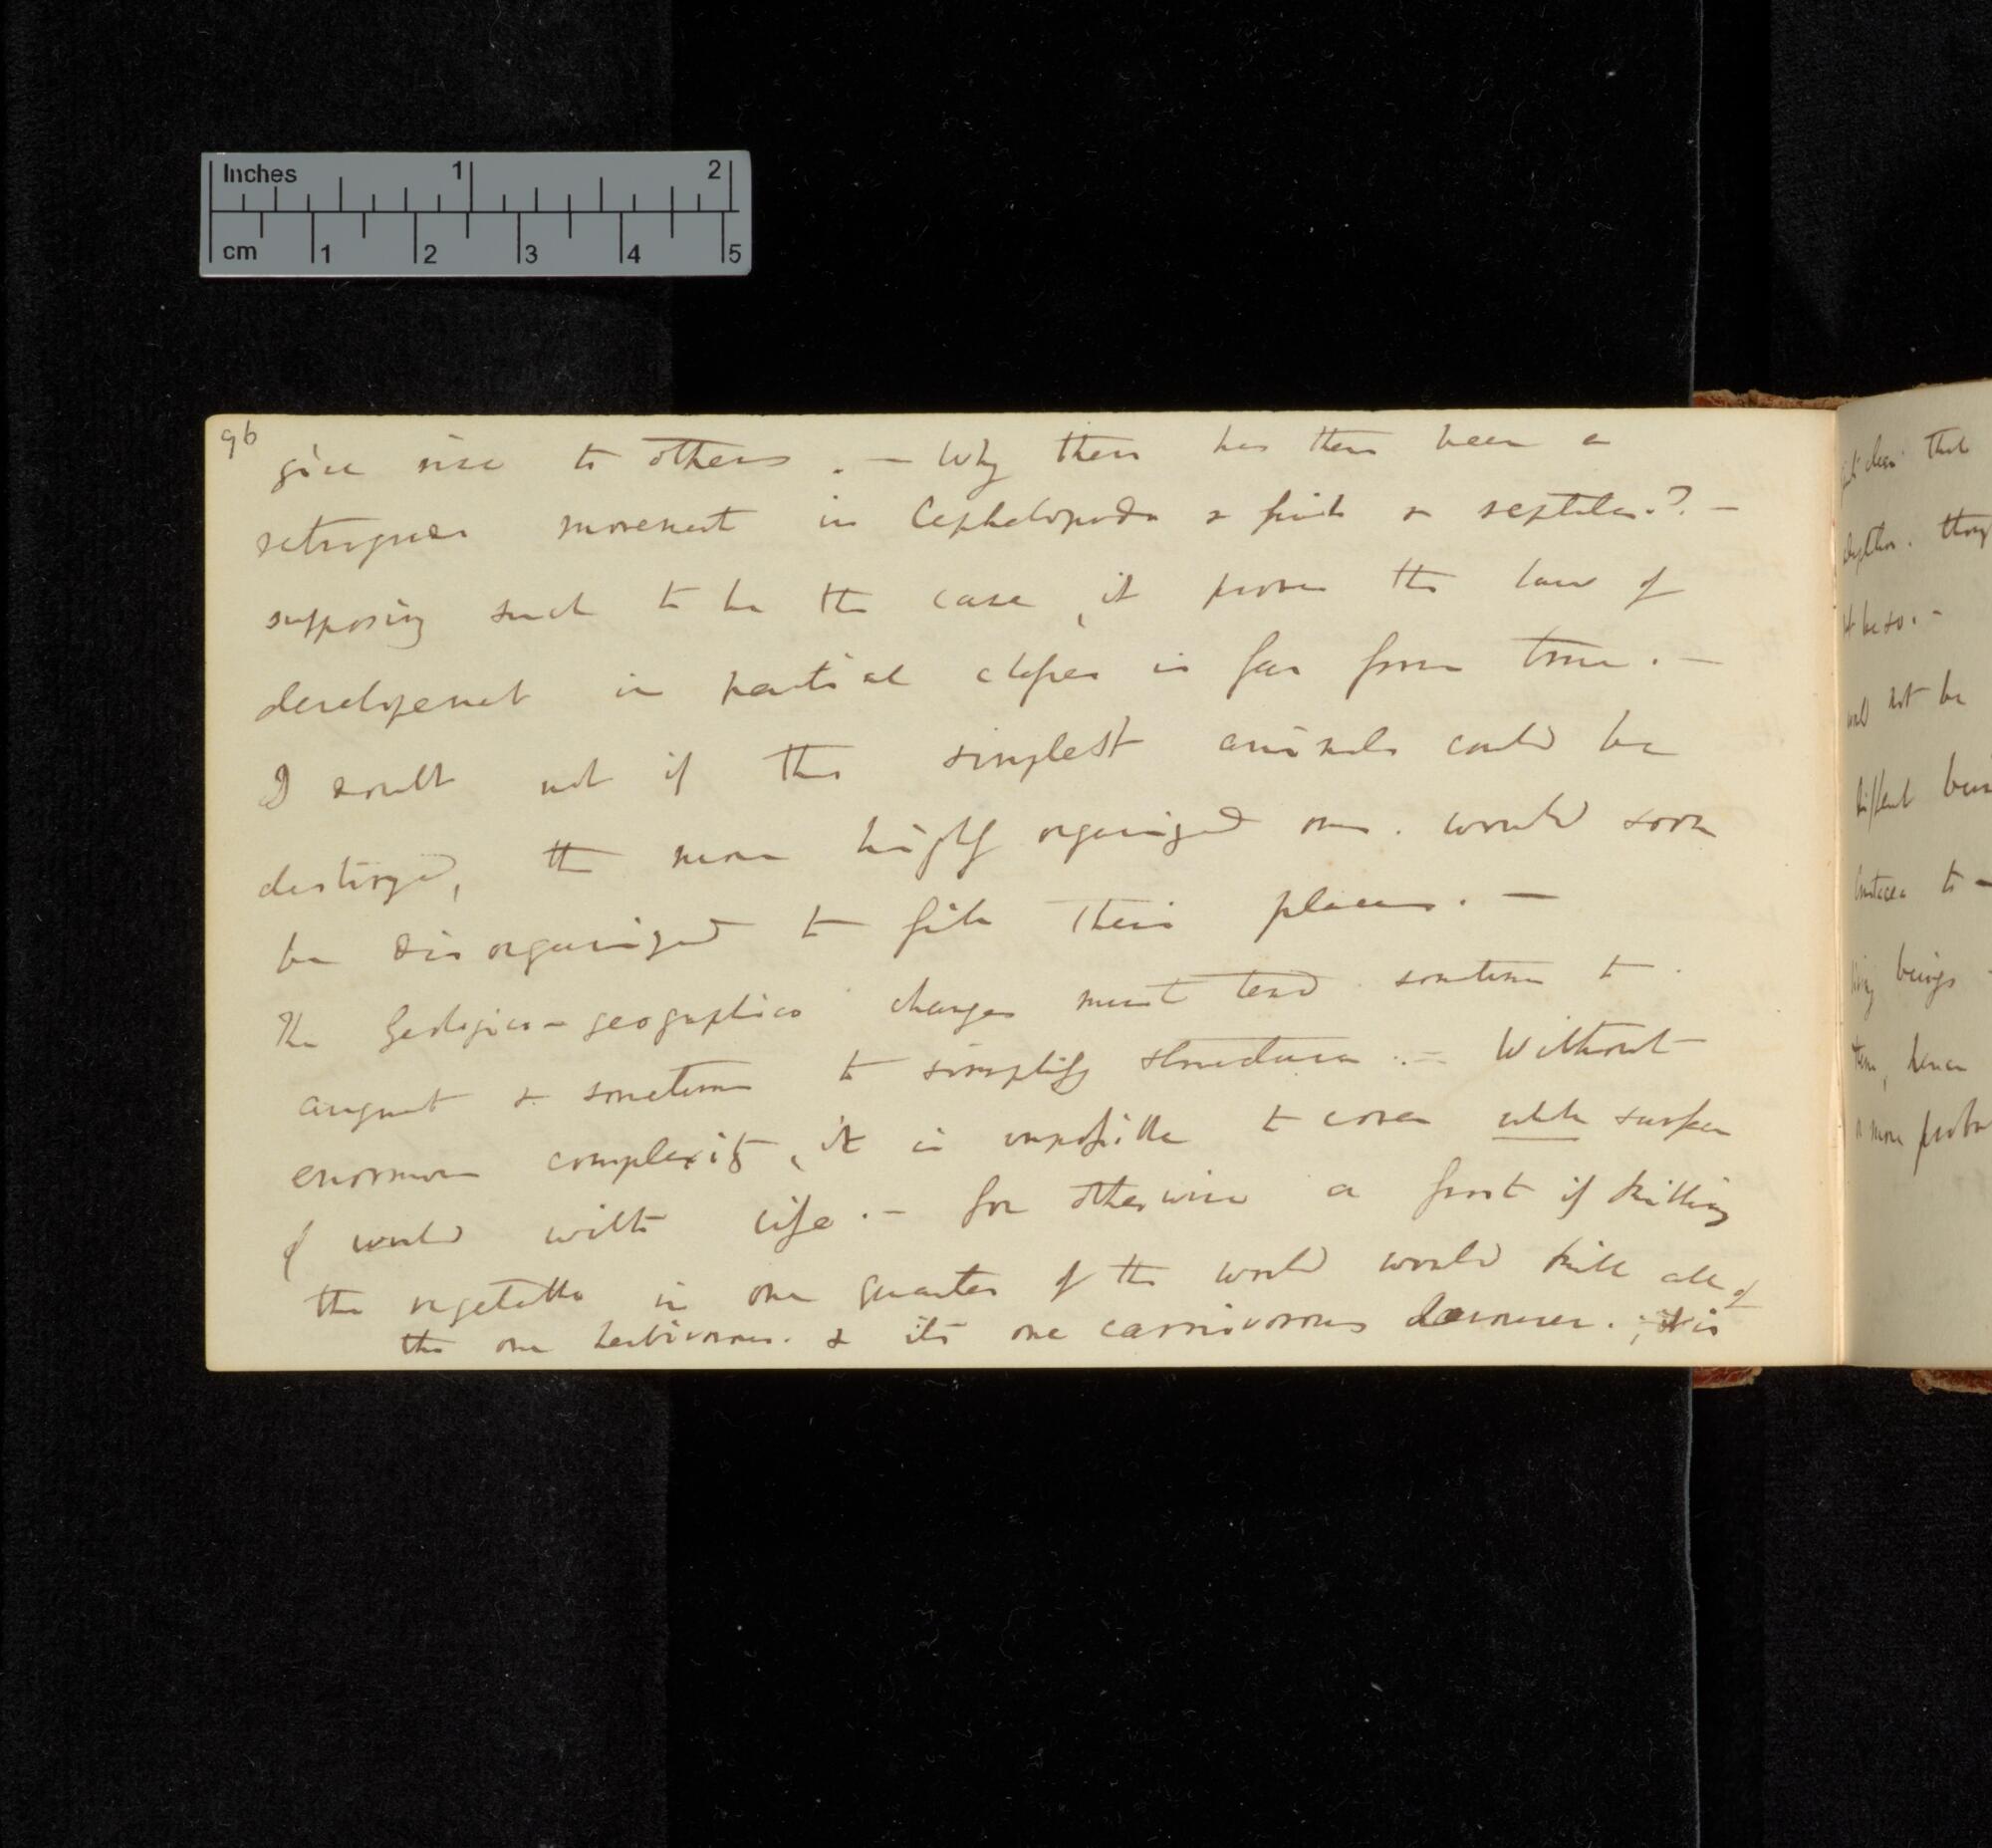 Inches 1 2
cm 1 2 3 4 5
96
give rise to others. — Why then has there been a
retrograde movement in Cephalopods & fish & reptiles.? —
supposing such to be the case, it proves the law of
developement in partial classes is far from true. —
I doubt not if the simplest animals could be
destroyed, the more highly organized ones. would soon
be disorganized to fill their places. —
The Geologico-geographico changes must tend sometimes to
augment & sometimes to simplify structures. — Without
enormous complexity, it is impossible to cover whole surface
of world with life. — for otherwise a frost if killing
the vegetable in one quarter of the world would kill all of
the one herbivorous. & its one carnivorous devourer. ; it is
clear that
not be
to —
beings
them, hence
more